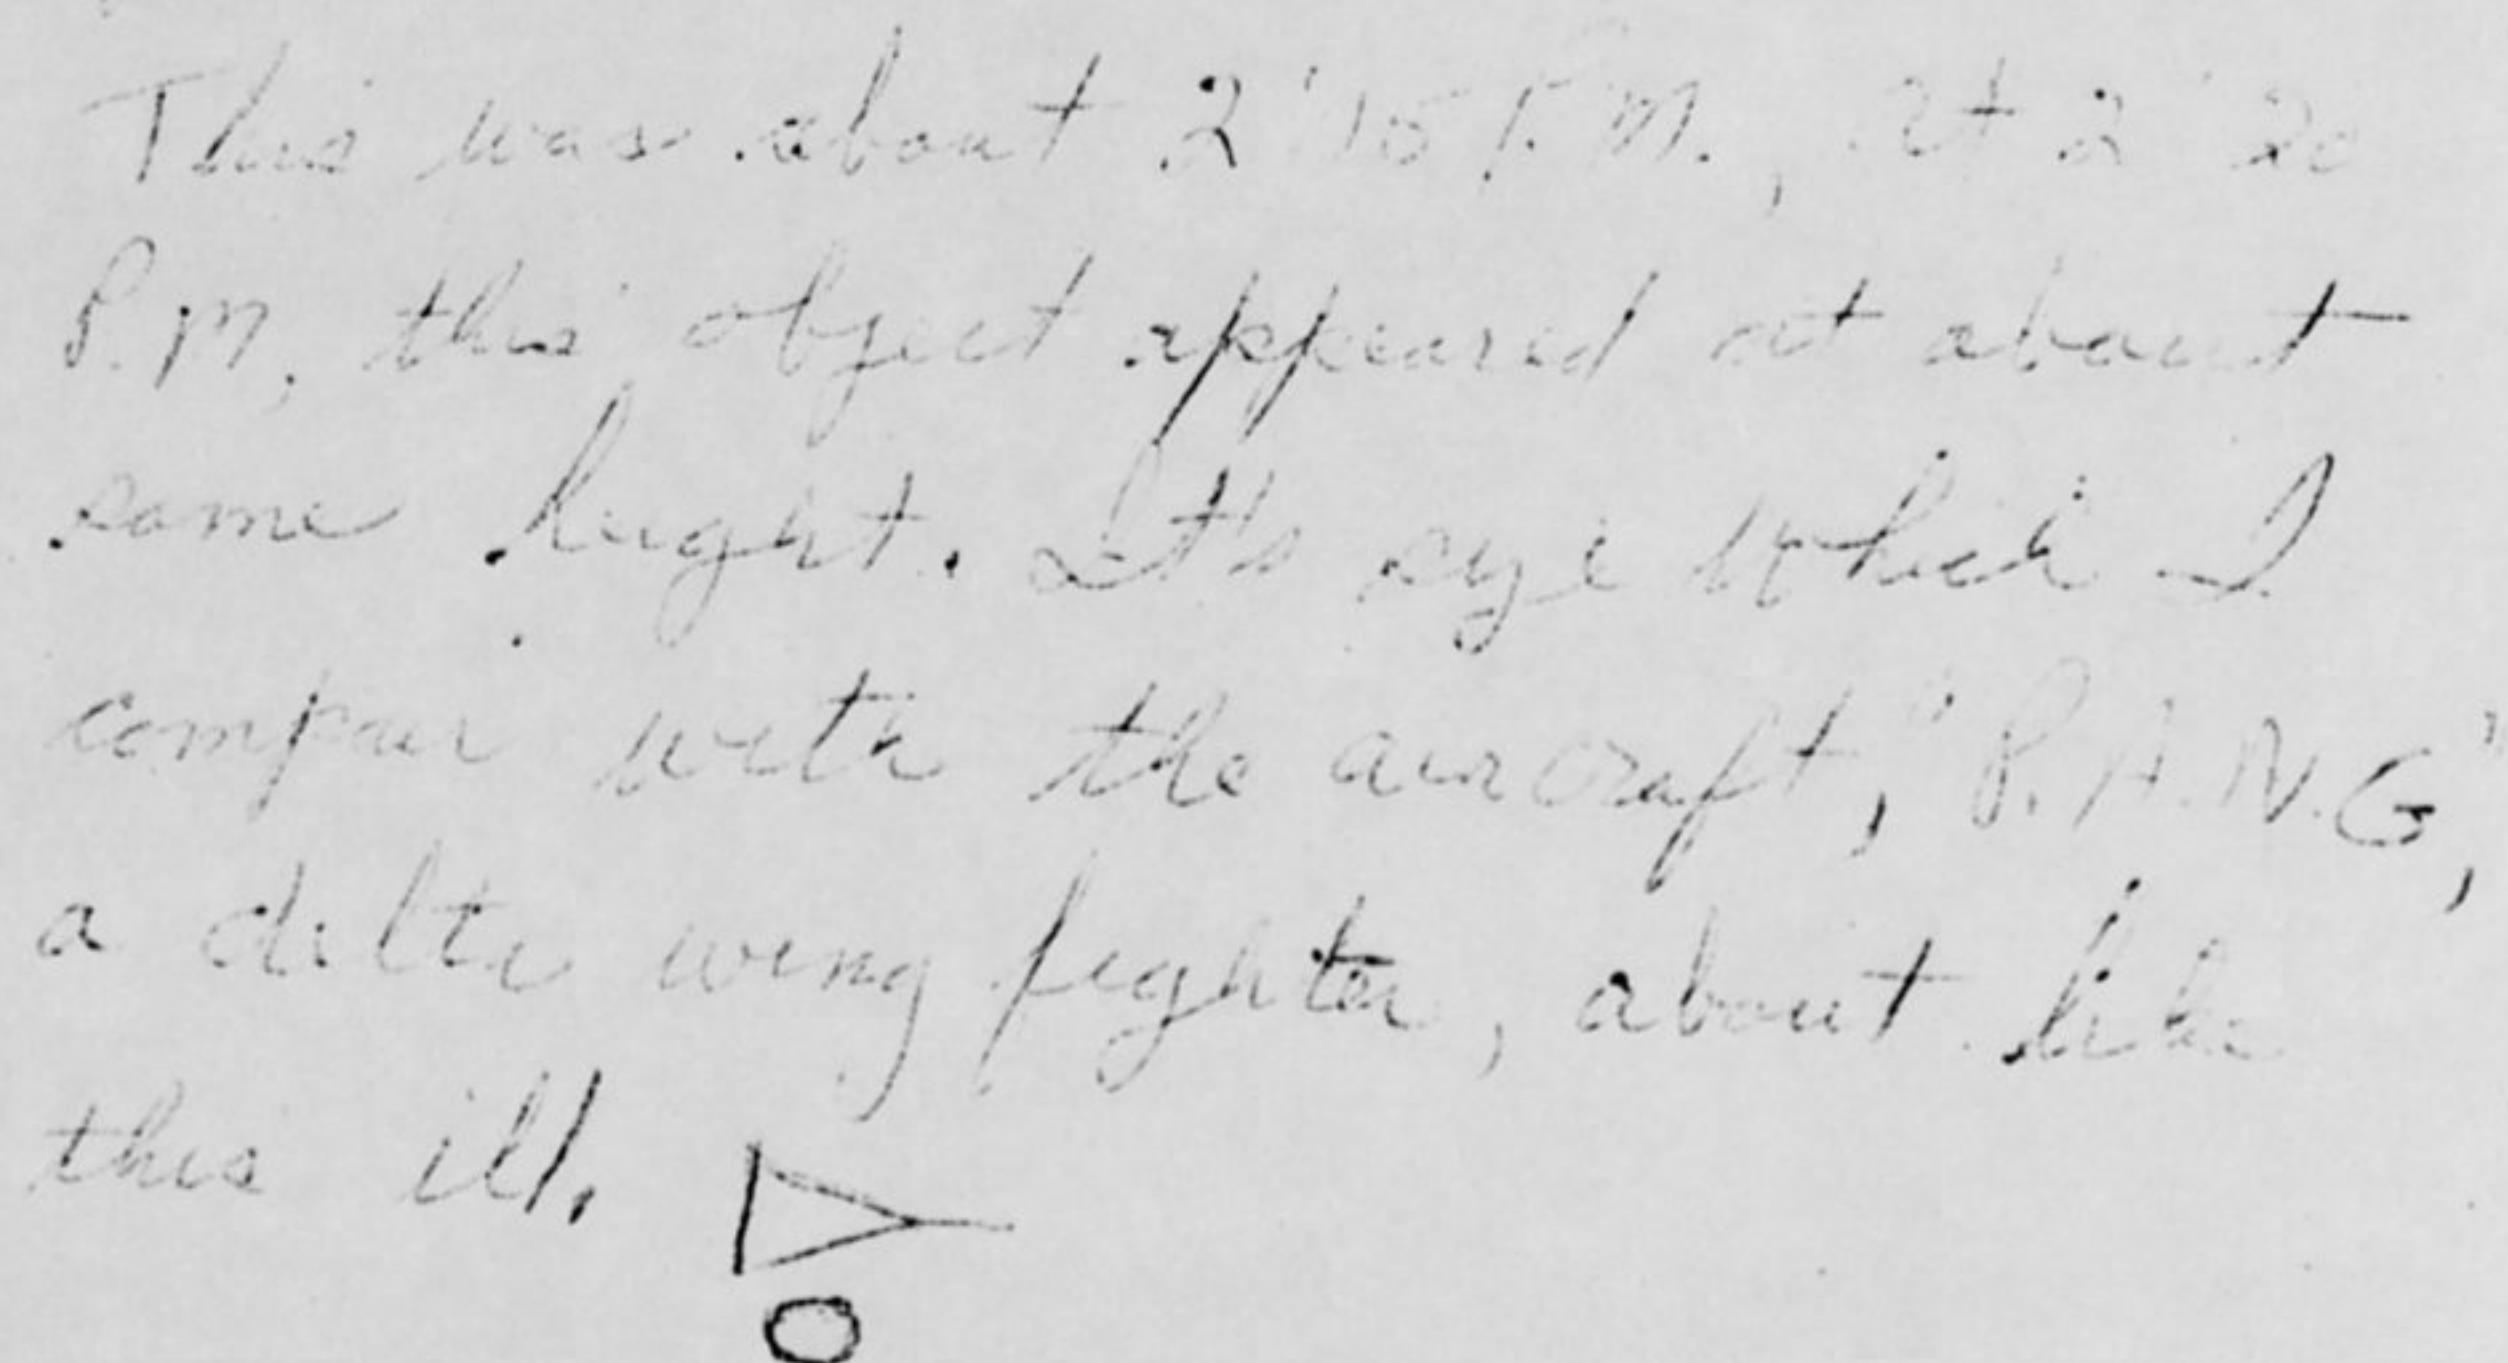 This was about 2:15 P.M., at 2:20
P.M. this object appeared at about
same height. It's size which I
compair with the aircraft, "P.A.N.G",
a delta wing fighter, about like
this ill.